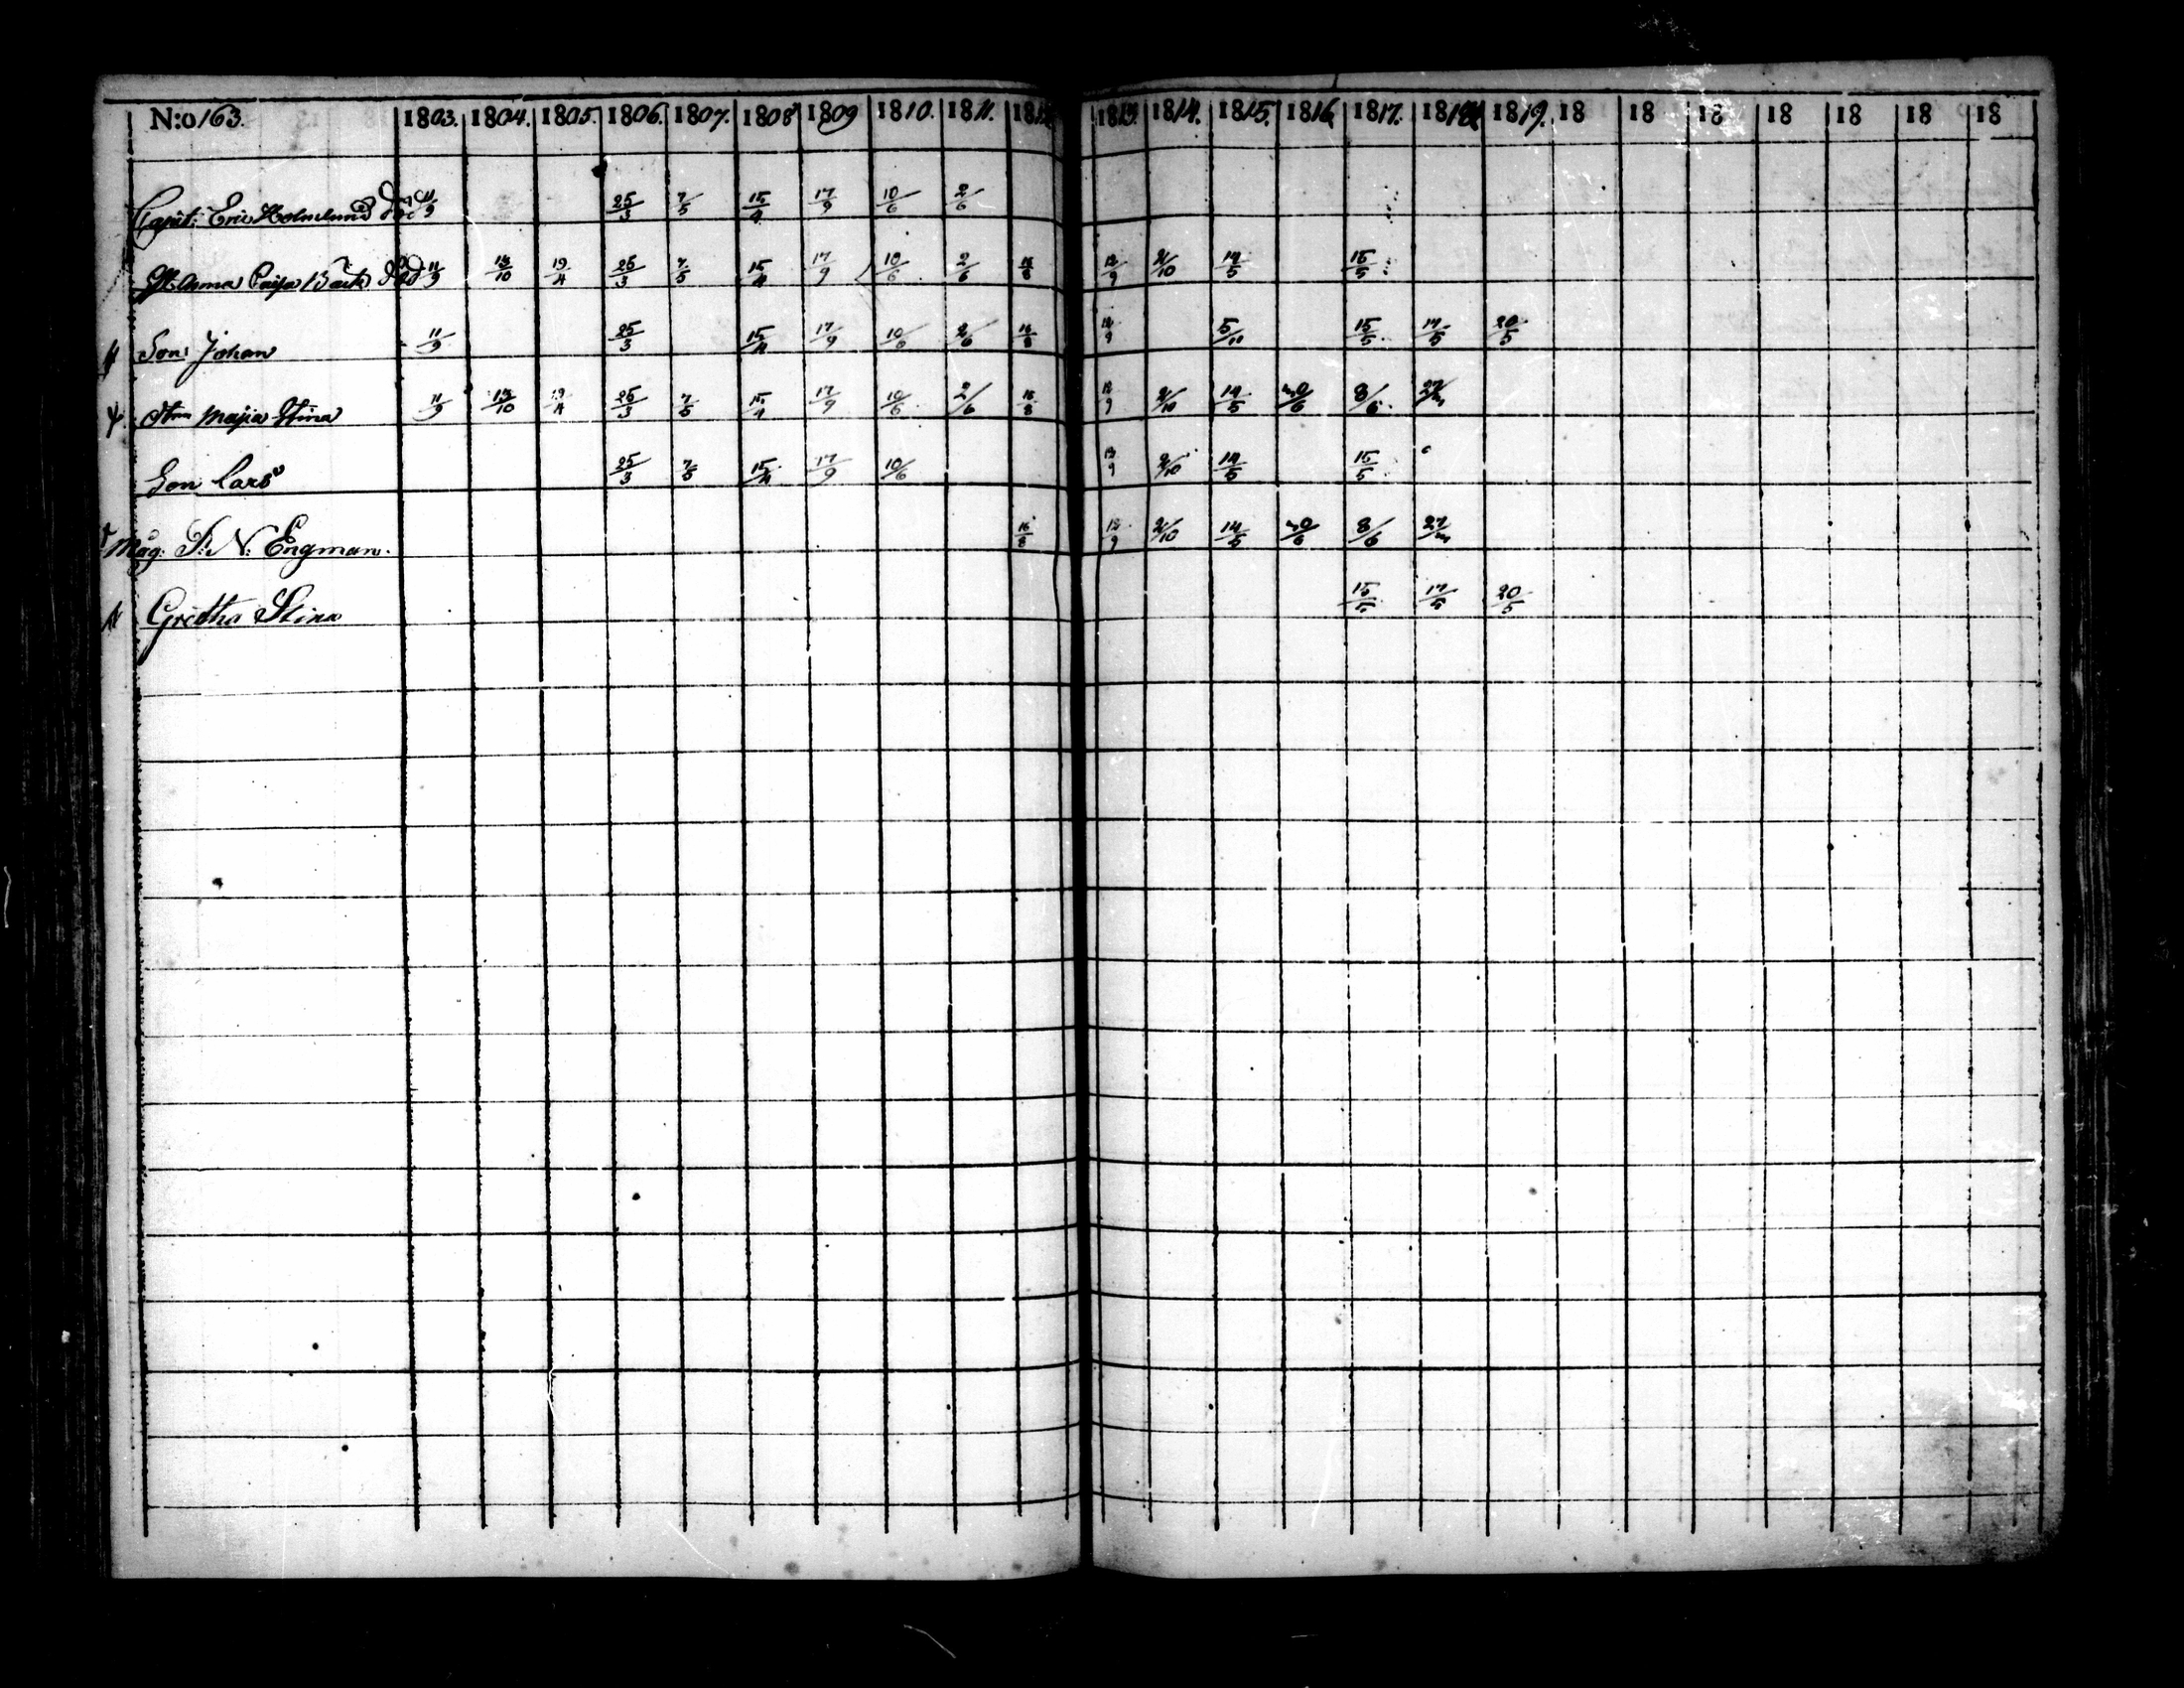 N:o 163. 1803. 1804. 1805. 1806. 1807. 1808 1809 1810. 1811. 1812 1813. 1814. 1815. 1816 1817. 1818 1819. 18 18 18 18 18 18 18
Capit: Eric Holmlund död 11/9 25/3 7/5 15/4 17/9 10/6 2/6
Anna Caisa Back död 11/9 13/10 19/4 25/3 7/5 15/4 17/9 10/6 2/6 16/8 12/9 2/10 14/5 15/5
Son Johan 11/9 25/3 15/4 17/9 10/6 2/6 16/8 12/9 5/11 15/5 17/5 20/5
Maja Stina 11/9 13/10 19/4 25/3 7/5 15/4 17/9 10/6 2/6 16/8 12/9 2/10 14/5 8/6
Son Lars 25/3 7/5 15/4 17/9 10/6 12/9 2/10 14/5 15/5
Måg: S: N: Engman. 16/8 12/9 2/10 14/5 8/6
Gretha Stina 15/5 17/5 20/5